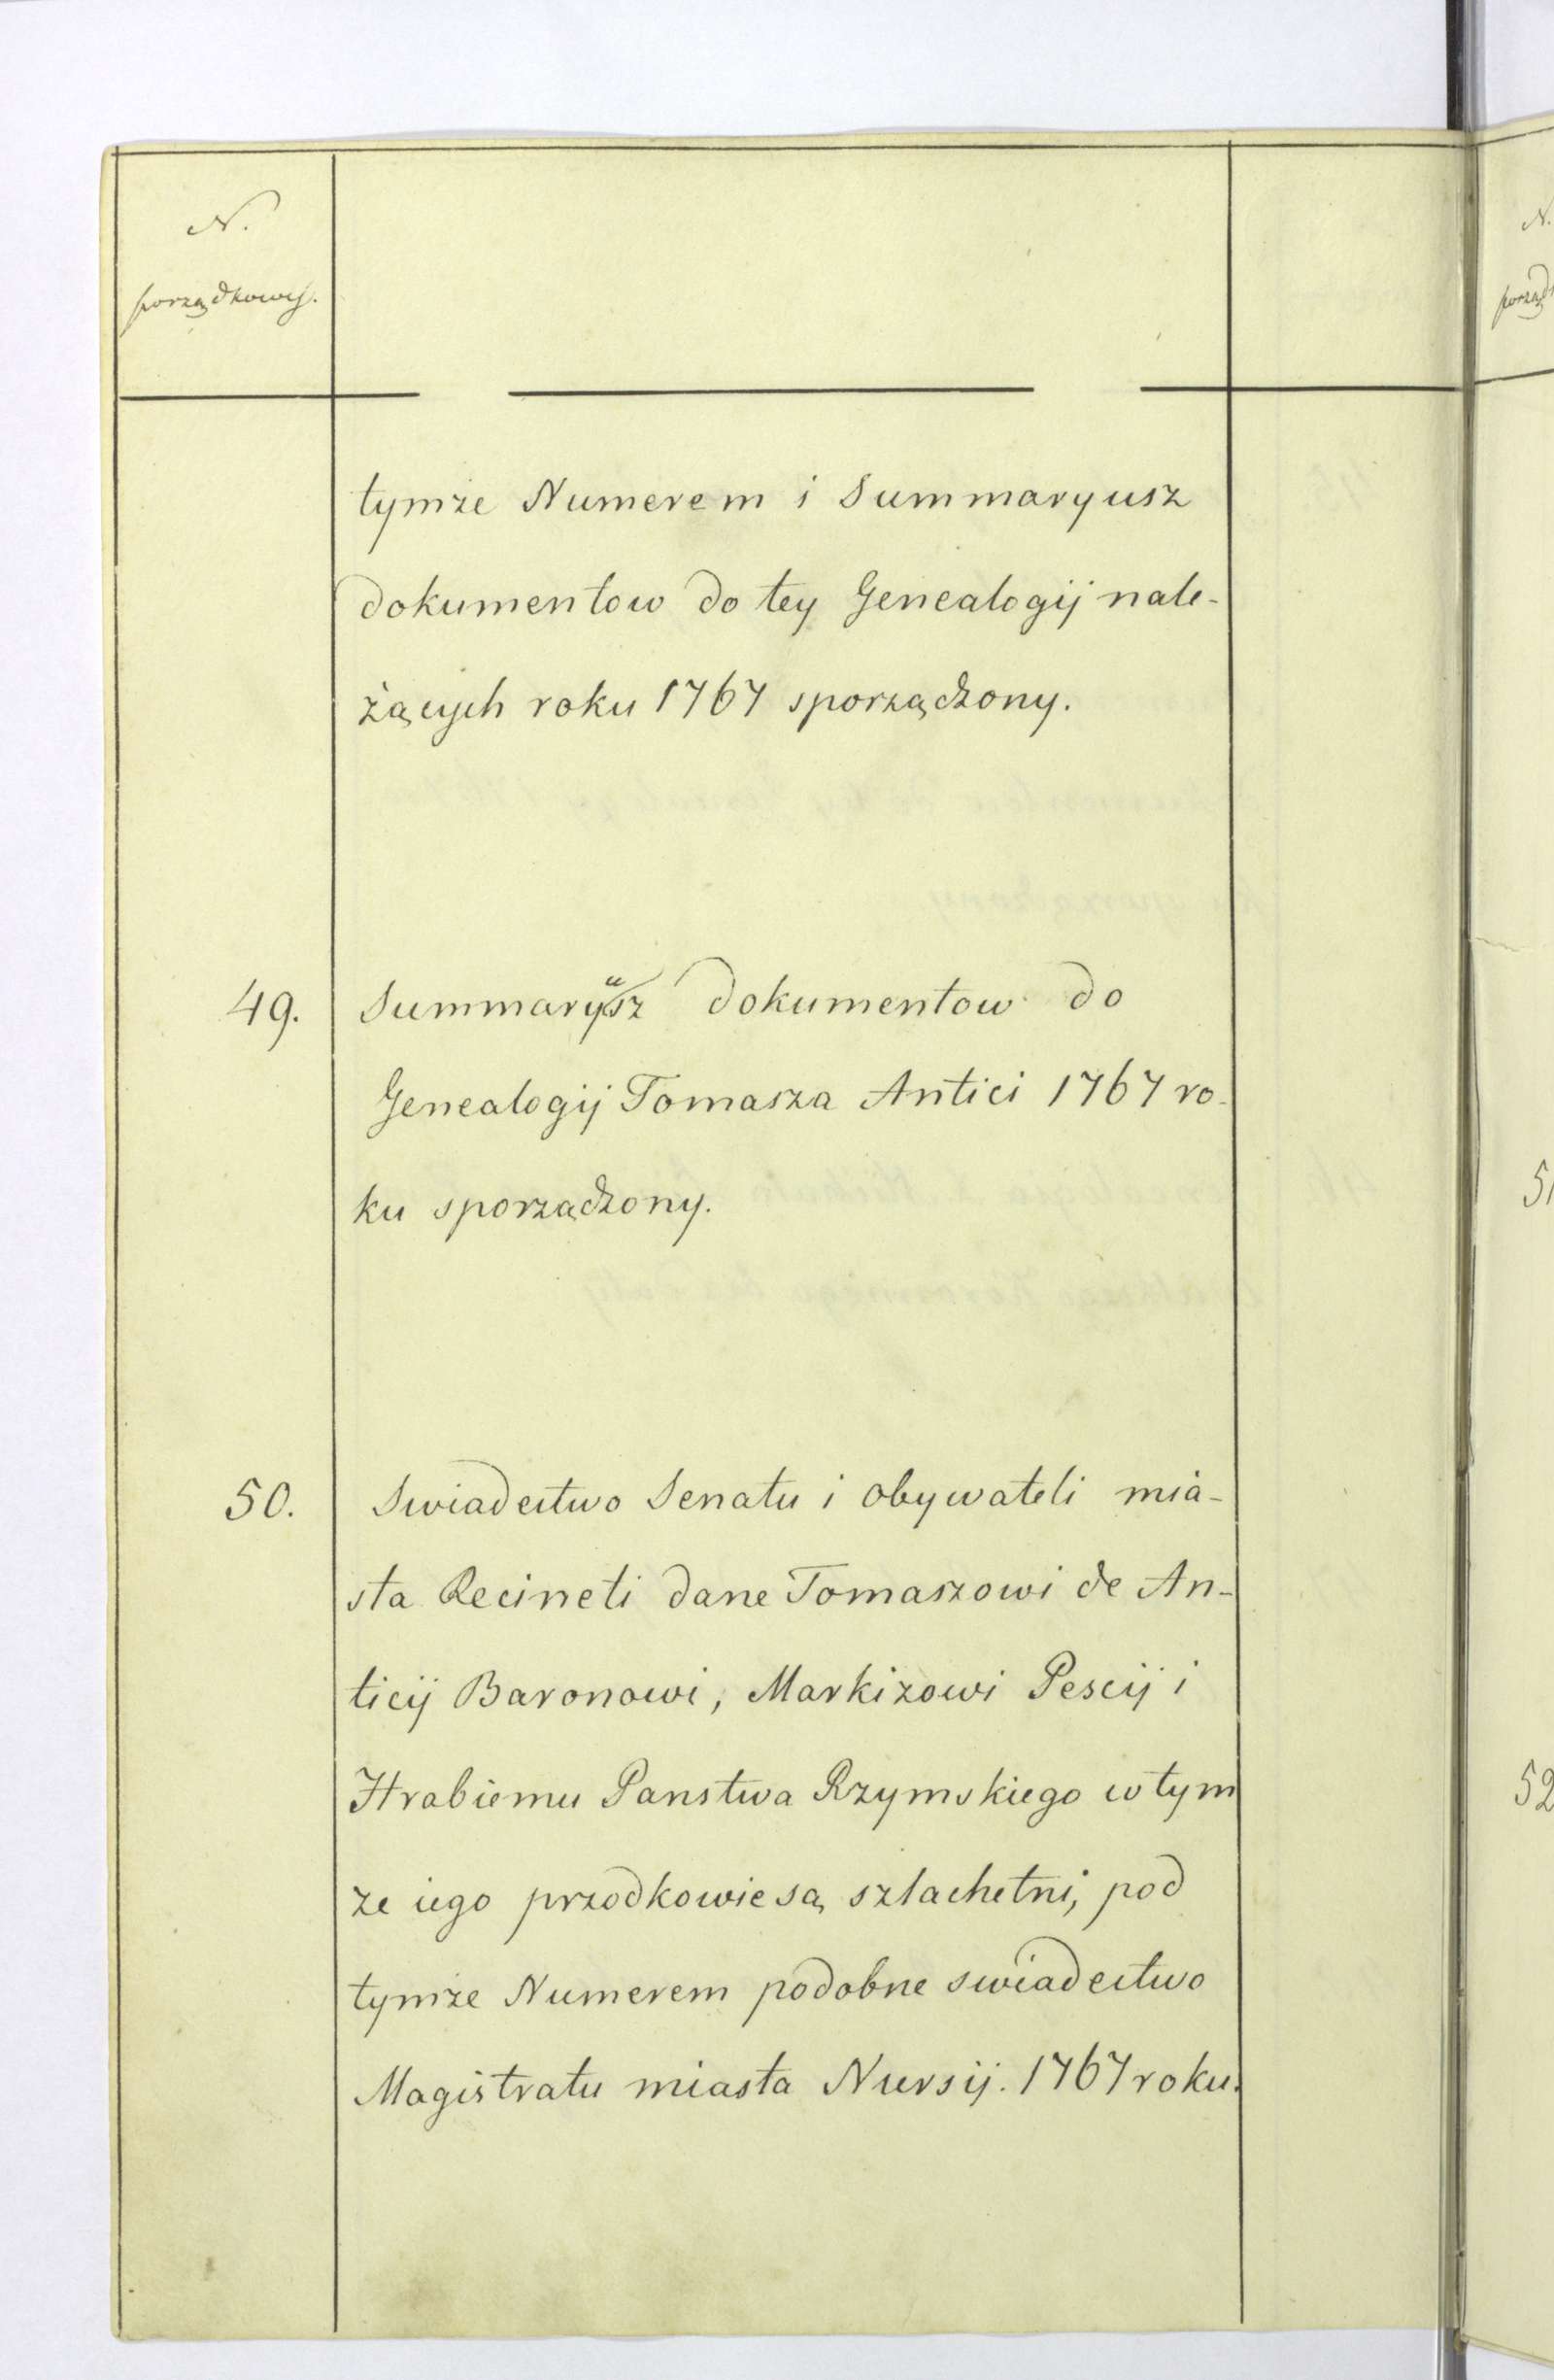 N.
porządkowy.
tymże Numerem i Summaryusz
dokumentow do tey Genealogij nale-
żących roku 1767 sporządzony.
49. Summaryusz dokumentow do
Genealogij Tomasza Antici 1767 ro-
ku sporządzony.
50. Swiadectwo Senatu i obywateli mia-
sta Recineti dane Tomaszowi de An-
ticij Baronowi, Markizowi Pescij i
Hrabiemu Panstwa Rzymskiego w tym
ze iego przodkowie są szlachetni, pod
tymże Numerem podobne swiadectwo
Magistratu miasta Nursij. 1767 roku.
N.
porząd
51
52